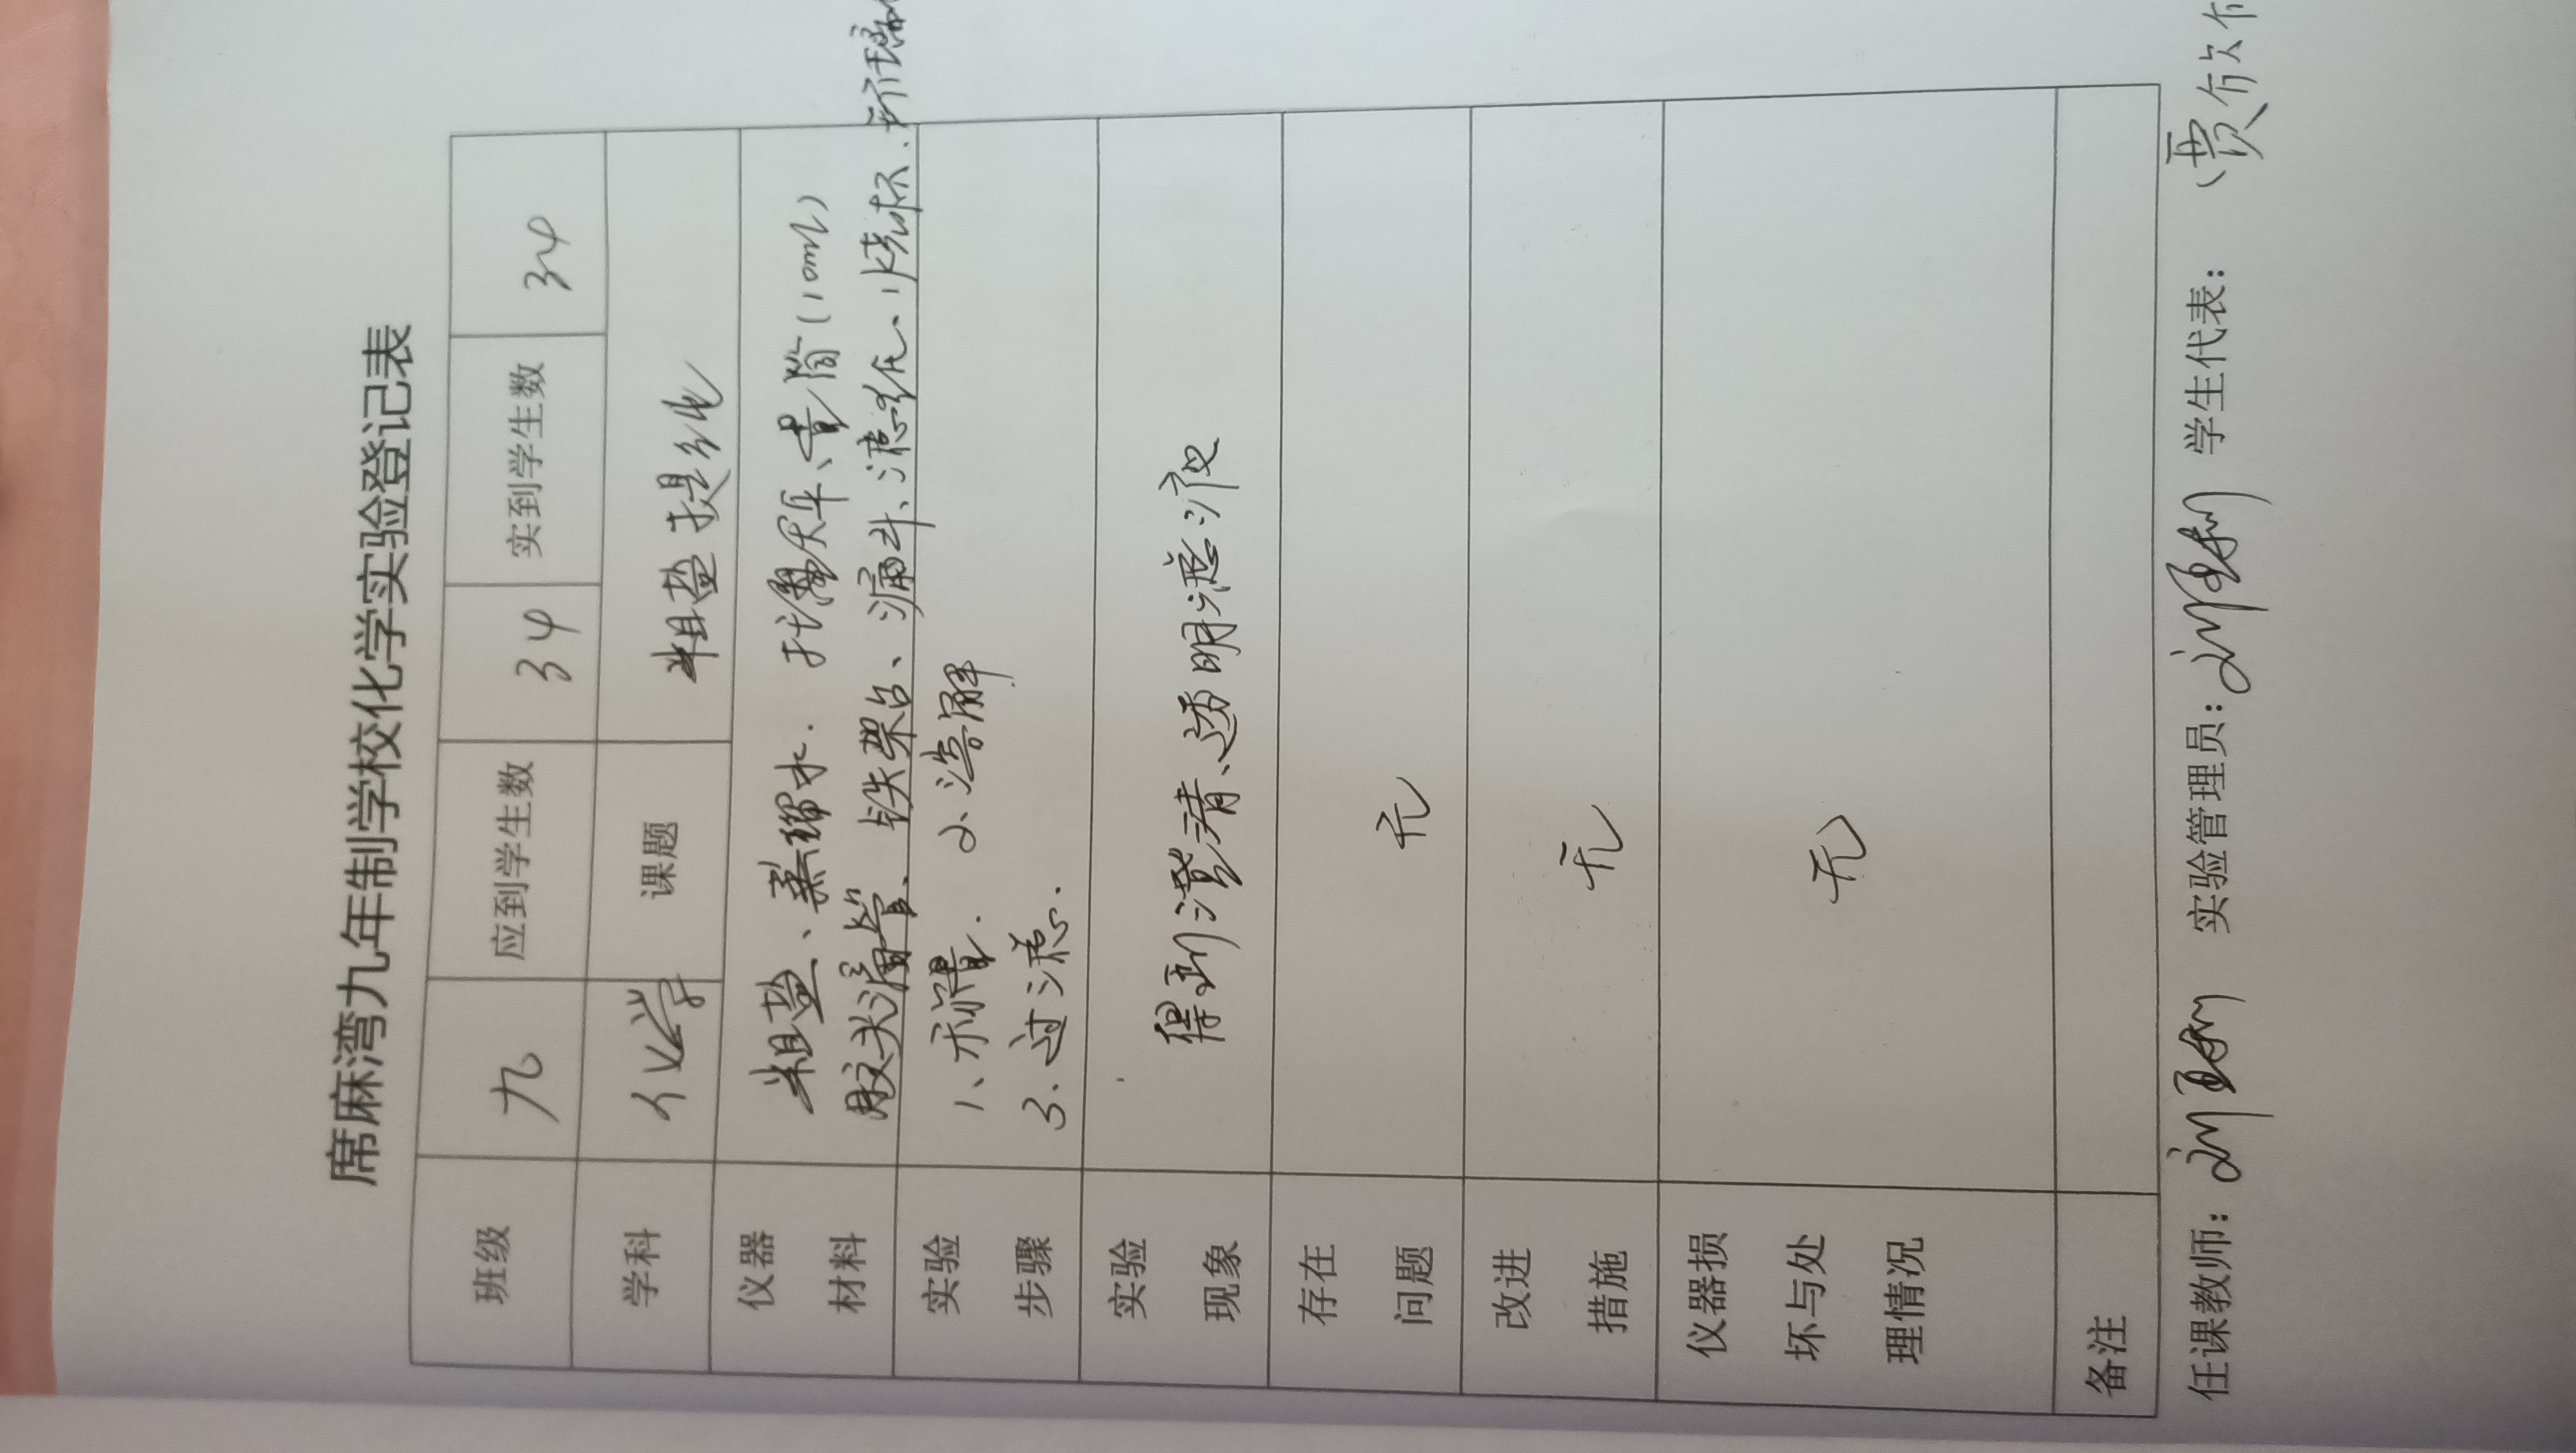 席麻湾九年制学校化学实验登记表
班级 九 应到学生数 34 实到学生数 34
学科 化学 课题 粗盐提纯
仪器 粗盐、蒸馏水. 托盘天平、量筒(10ml)
材料 胶头滴管、铁架台、漏斗、滤纸、烧杯、所
实验 1、称量. 2、溶解
步骤 3、过滤.
实验
现象 得到澄清、透明滤液
存在
问题 无
改进
措施 无
仪器损
坏与处 无
理情况
备注
任课教师: 实验管理员: 学生代表: 贾